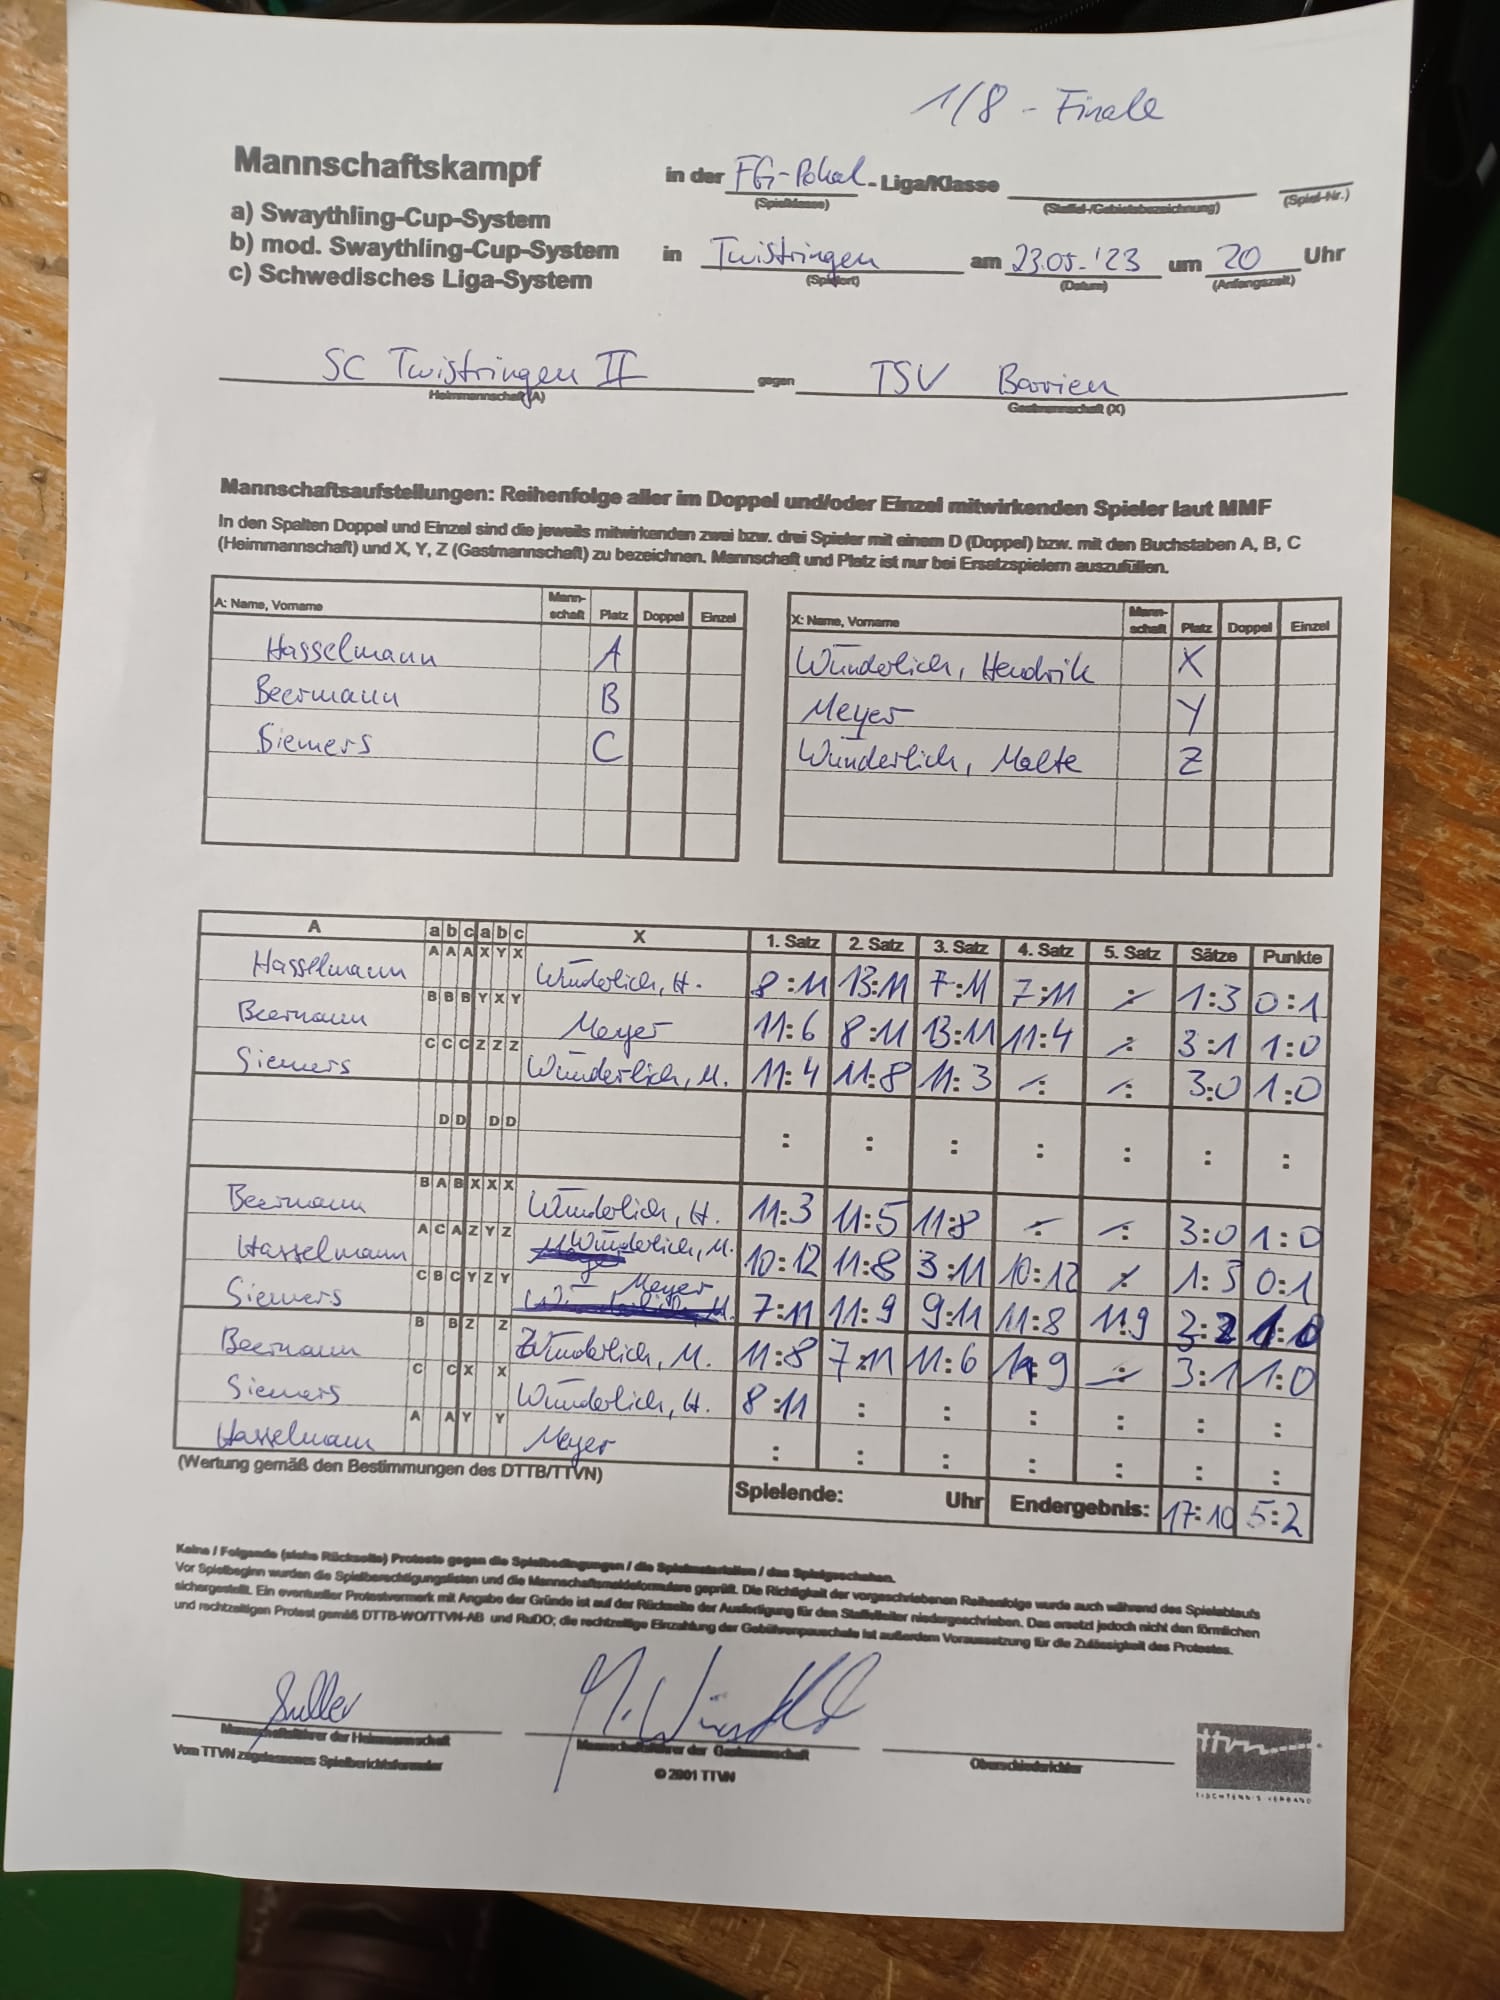 1/8 - Finale
Mannschaftskampf in der FG-Pokal - Liga/Klasse
(Spielklasse) (Staffel-/Gebietsbezeichnung) (Spiel-Nr.)
a) Swaythling-Cup-System
b) mod. Swaythling-Cup-System in Twistringen am 23.05.'23 um 20 Uhr
c) Schwedisches Liga-System (Spielort) (Datum) (Anfangszeit)
SC Twistringen II gegen TSV Barrien
Heimmannschaft (A) Gastmannschaft (X)
Mannschaftsaufstellungen: Reihenfolge aller im Doppel und/oder Einzel mitwirkenden Spieler laut MMF
In den Spalten Doppel und Einzel sind die jeweils mitwirkenden zwei bzw. drei Spieler mit einem D (Doppel) bzw. mit den Buchstaben A, B, C
(Heimmannschaft) und X, Y, Z (Gastmannschaft) zu bezeichnen. Mannschaft und Platz ist nur bei Ersatzspielern auszufüllen.
A: Name, Vorname Mann-schaft Platz Doppel Einzel
Hasselmann A
Beermann B
Siemers C
X: Name, Vorname Mann-schaft Platz Doppel Einzel
Wünderlich, Hendrik X
Meyer Y
Wünderlich, Malte Z
A a b c a b c X 1. Satz 2. Satz 3. Satz 4. Satz 5. Satz Sätze Punkte
Hasselmann A A A X Y X Wünderlich, H. 8:11 13:11 7:11 7:11 : 1:3 0:1
Beermann B B B Y X Y Meyer 11:6 8:11 13:11 11:4 : 3:1 1:0
Siemers C C C Z Z Z Wünderlich, M. 11:4 11:8 11:3 : : 3:0 1:0
D D D D : : : : : : :
Beermann B A B X X X Wünderlich, H. 11:3 11:5 11:8 : : 3:0 1:0
Hasselmann A C A Z Y Z Wünderlich, M. 10:12 11:8 3:11 10:12 : 1:3 0:1
Siemers C B C Y Z Y Meyer 7:11 11:9 9:11 11:8 11:9 3:2 1:0
Beermann B B Z Z Wünderlich, M. 11:8 7:11 11:6 11:9 : 3:1 1:0
Siemers C C X X Wünderlich, H. 8:11 : : : : : :
Hasselmann A A Y Y Meyer : : : : : : :
(Wertung gemäß den Bestimmungen des DTTB/TTVN) Spielende: Uhr Endergebnis: 17:10 5:2
Keine / Folgende (siehe Rückseite) Proteste gegen die Spielbedingungen / die Spielmaterialien / das Spielgeschehen.
Vor Spielbeginn wurden die Spielberechtigungslisten und die Mannschaftsmeldeformulare geprüft. Die Richtigkeit der vorgeschriebenen Reihenfolge wurde auch während des Spielablaufs
sichergestellt. Ein eventueller Protestvermerk mit Angabe der Gründe ist auf der Rückseite der Ausfertigung für den Staffelleiter niedergeschrieben. Das ersetzt jedoch nicht den förmlichen
und rechtzeitigen Protest gemäß DTTB-WO/TTVN-AB und RuDO; die rechtzeitige Einzahlung der Gebührenpauschale ist außerdem Voraussetzung für die Zulässigkeit des Protestes.
Mannschaftsführer der Heimmannschaft Mannschaftsführer der Gastmannschaft Oberschiedsrichter
Vom TTVN zugelassenes Spielberichtsformular © 2001 TTVN
ttvn
TISCHTENNIS VERBAND